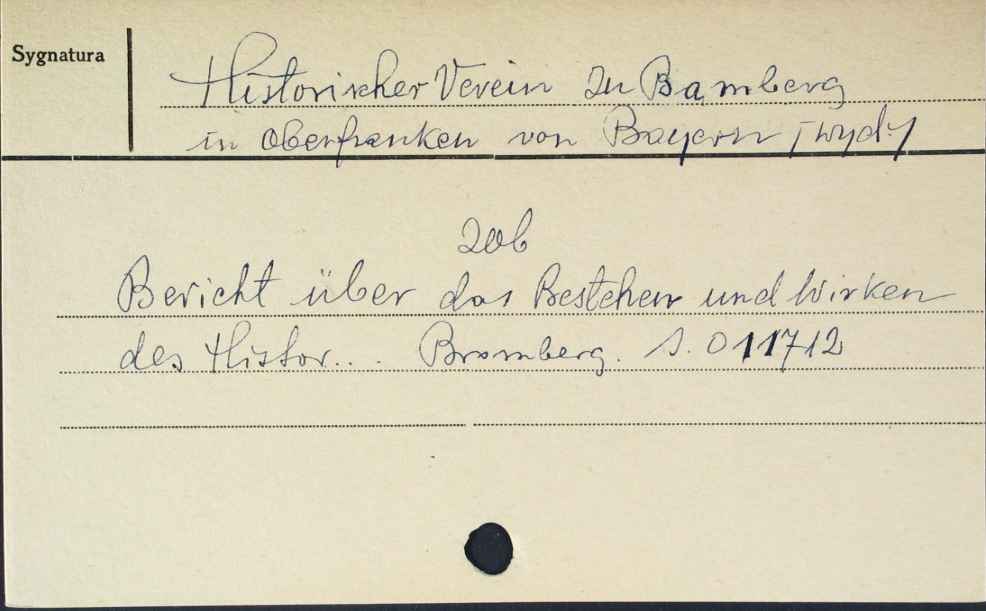 Sygnatura
Historischer Verein zu Bamberg
in Oberfranken von Bayern [wyd.]
zob
Bericht über das Bestehen und Wirken
des Histor... Bromberg. S. 011712